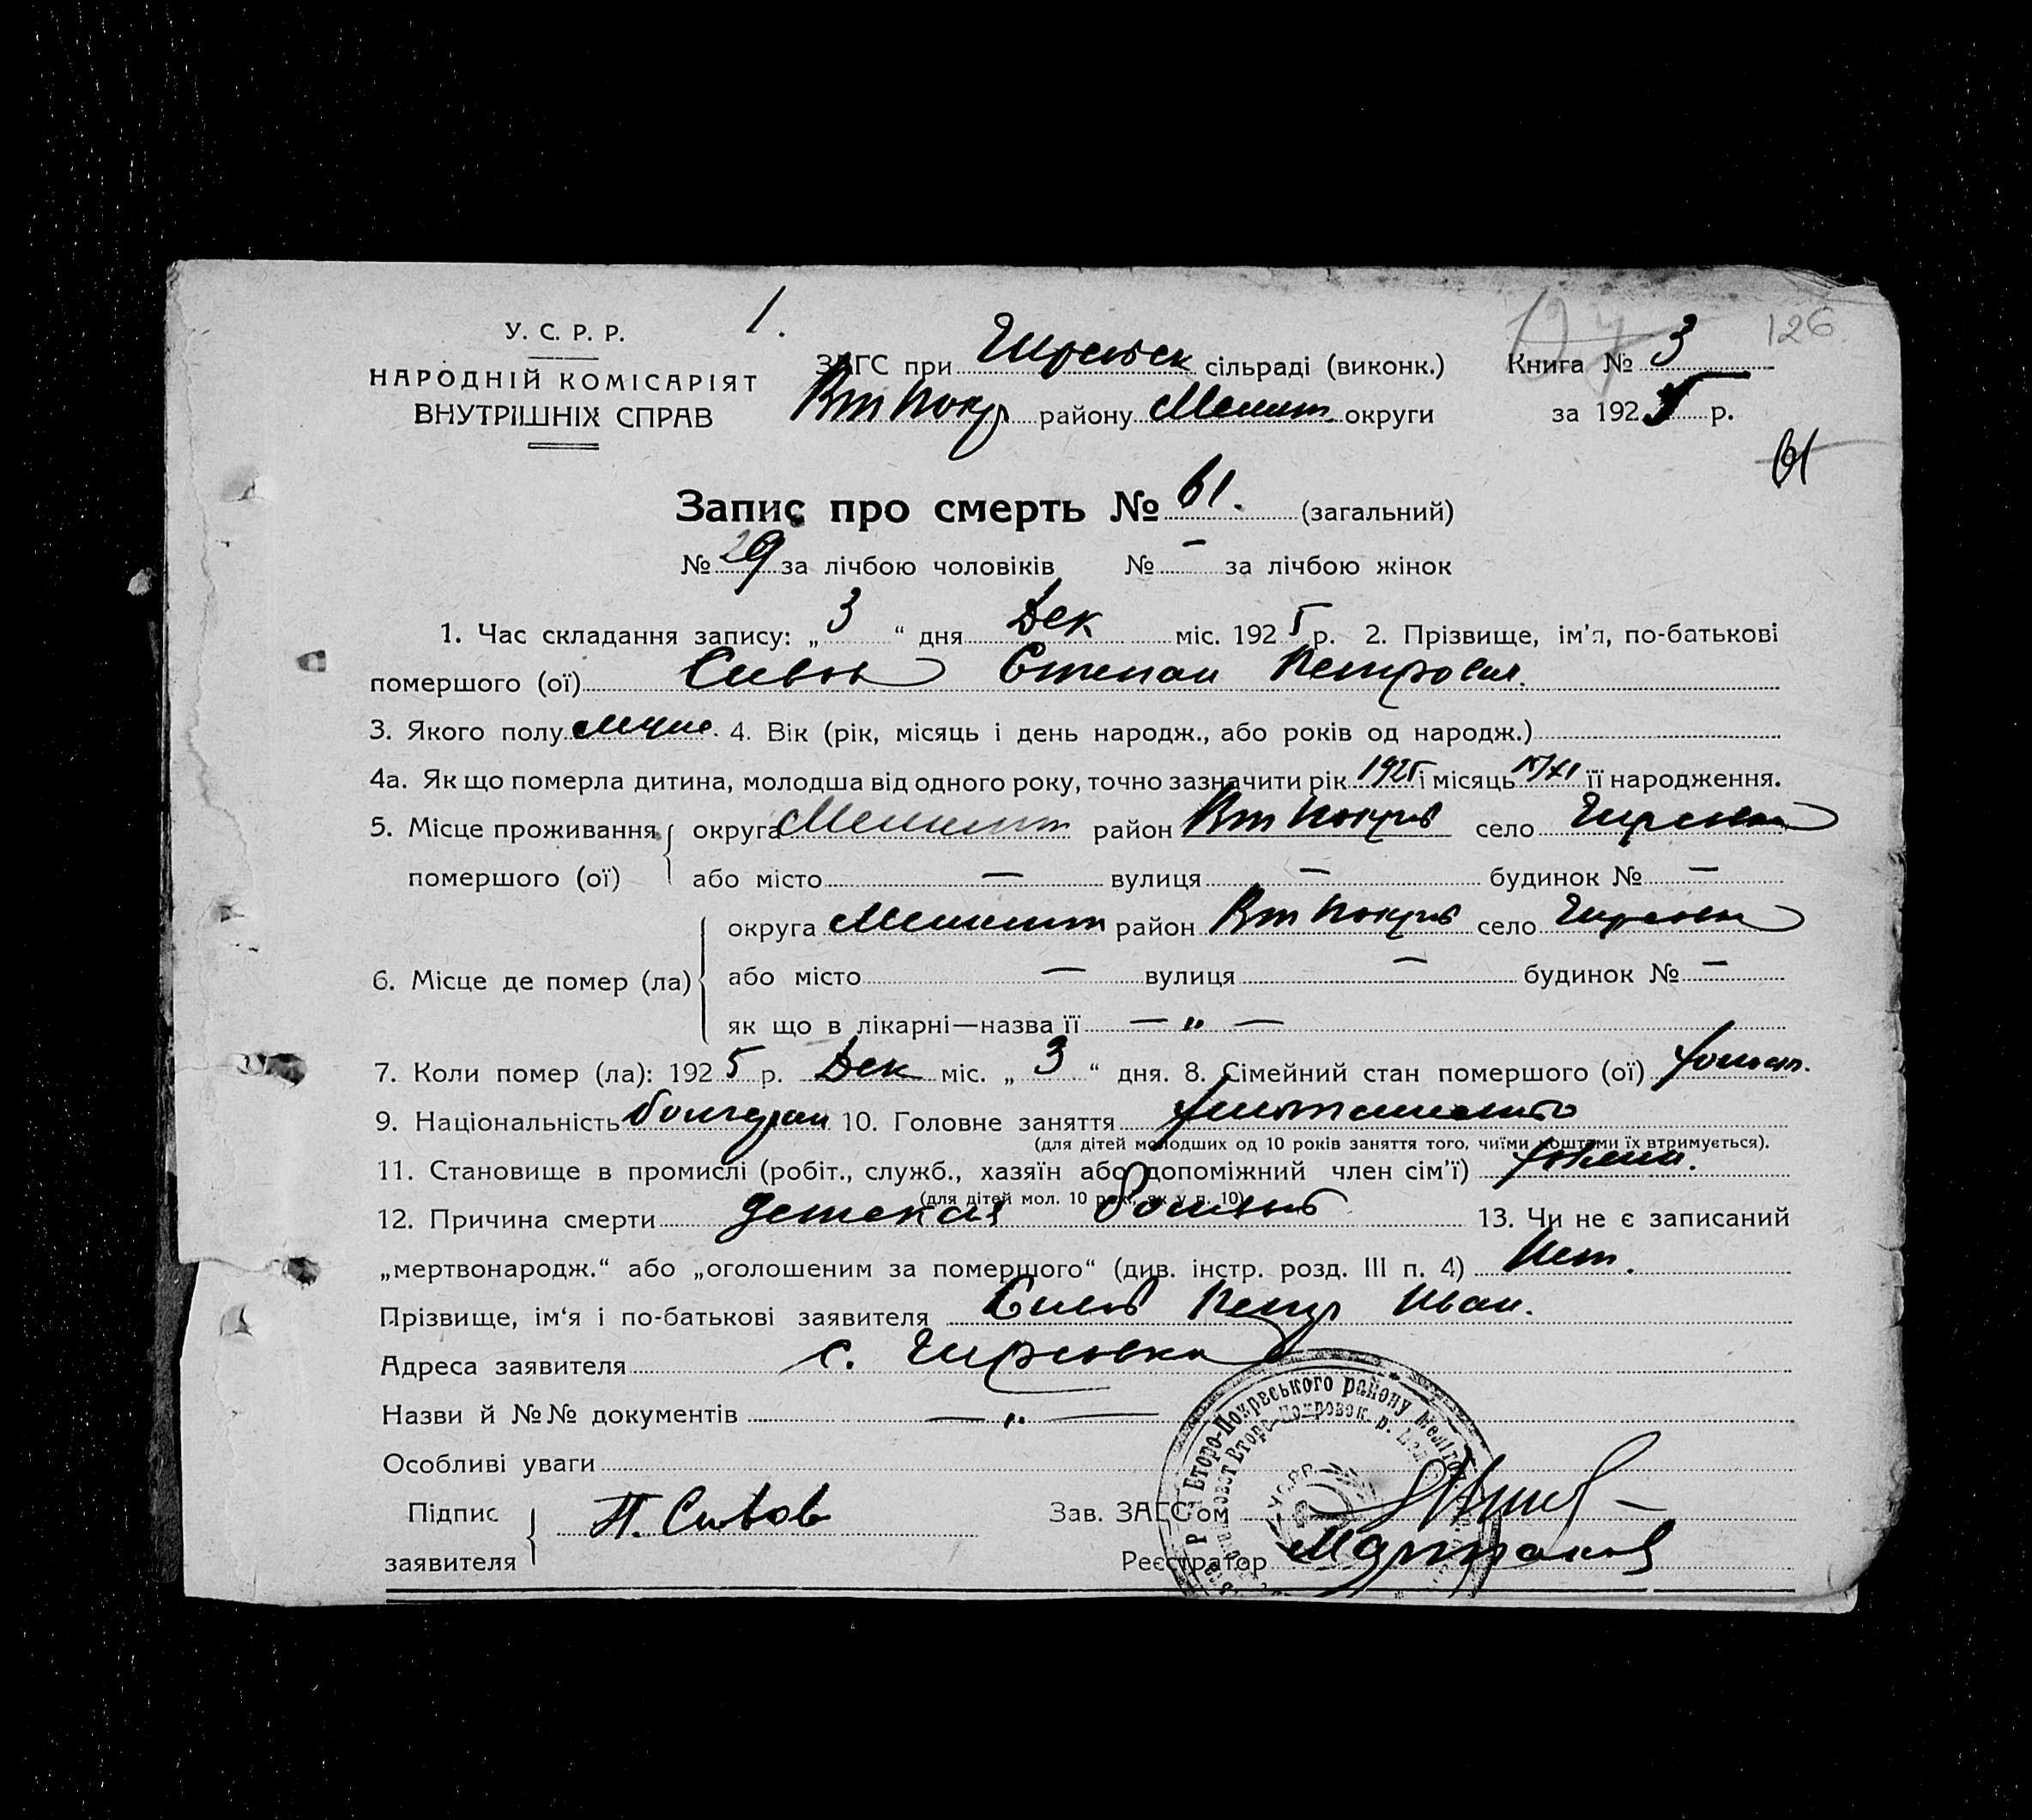 1.
У. С. Р. Р.
НАРОДНІЙ КОМІСАРІЯТ
ВНУТРІШНІХ СПРАВ
ЗАГС при Гирсовск сільраді (виконк.)
Вт Покр району Мелит округи
Книга № 3
126
за 1925 р.
61
Запис про смерть № 61. (загальний)
№ 29 за лічбою чоловіків № — за лічбою жінок
1. Час складання запису: „ 3 “ дня Дек міс. 1925 р. 2. Прізвище, ім'я, по-батькові
помершого (ої) Сивов Степан Петрович.
3. Якого полу муж. 4. Вік (рік, місяць і день народж., або років од народж.)
4а. Як що померла дитина, молодша від одного року, точно зазначити рік 1925 і місяць /XI її народження.
5. Місце проживання округа Мелит район Вт Покров село Гирсовка
помершого (ої) або місто — вулиця — будинок № —
округа Мелит район Вт Покров село Гирсовка
6. Місце де помер (ла) або місто — вулиця — будинок № —
як що в лікарні—назва її — „ —
7. Коли помер (ла): 1925 р. Дек міс. „ 3 “ дня. 8. Сімейний стан помершого (ої) холост.
9. Національність болгарин 10. Головне заняття
(для дітей молодших од 10 років заняття того, чиїми коштами їх втримується).
11. Становище в промислі (робіт., служб., хазяїн або допоміжний член сім'ї)
(для дітей мол. 10 рок. як у п. 10)
12. Причина смерти детская болезнь 13. Чи не є записаний
„мертвонародж.“ або „оголошеним за помершого“ (див. інстр. розд. III п. 4) Нет.
Прізвище, ім'я і по-батькові заявителя Сивов Петр Иван.
Адреса заявителя с. Гирсовка
Назви й №№ документів — „ —
Особливі уваги
Підпис
заявителя П. Сивов
Зав. ЗАГС'ом
Реєстратор
Второ-Покрвського району Меліто
Второ-Покровок р.
УСРР